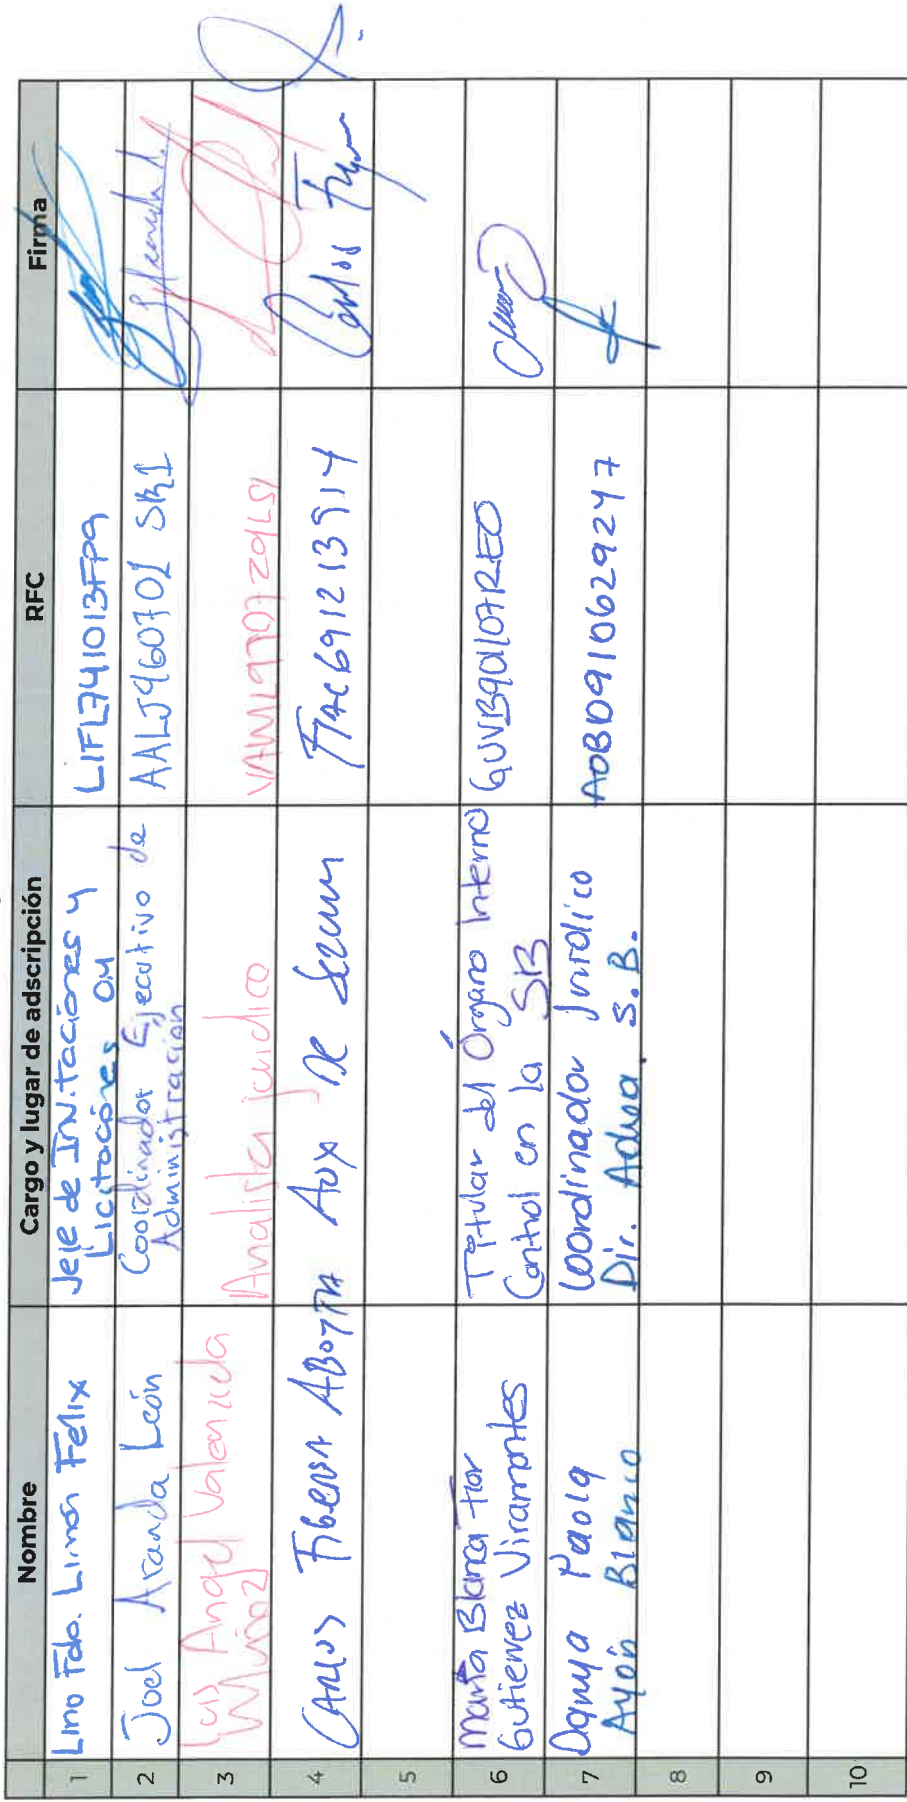 Nombre Cargo y lugar de adscripción RFC Firma
1 Lino Fdo. Limón Felix Jefe de Invitaciones y Licitaciones OM LIFL741013FP9
2 Joel Aranda León Coordinador Ejecutivo de Administración AALJ960701 SR1
3 Luis Angel Valenzuela Muñoz Analista juridico VAML970729LS1
4 CARLOS FIGUEROA ABOYTIA AUX DE FIAC691213514 Carlos
5
6 María Blanca Flor Gutierrez Viramontes Titular del Órgano Interno Control en la SB GUVB901107REO
7 Danya Paola Ayón Blanco Coordinador Jurídico Dir. Adva. S.B. AOBD910629247
8
9
10